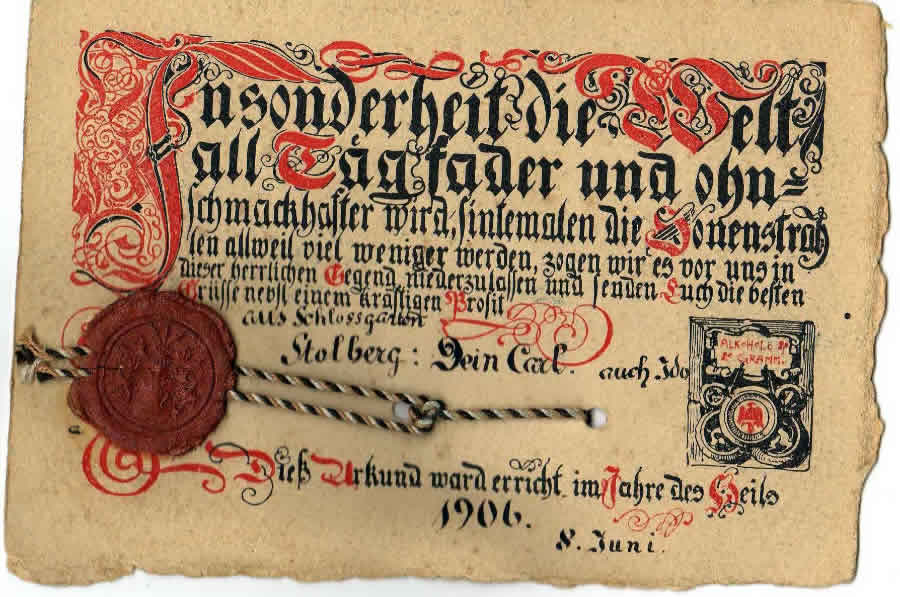 Insonderheit die Welt
all Täg fader und ohn=
schmackhafter wird, sintemalen die Sonenstrah
len allweil viel weniger werden, zogen wir es vor uns in
dieser herrlichen Gegend niederzulassen und senden Euch die besten
Grüsse nebst einem kräftigen Prosit
aus Schlossgarten
Stolberg: Dein Carl. auch Ido
ALKOHOL
GRAMM.
Dieß Urkund ward erricht im Jahre des Heils
1906.
8. Juni.